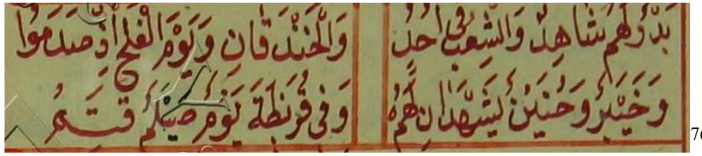 بَدْرٌ لَهُمْ شَاهِدٌ وَالشِّعْبُ فِي أُحُدٍ وَالْخَنْدَقَانِ وَيَوْمَ الْفَتْحِ إِذْ صَدَمُوا
وَخَيْبَرٌ وَحُنَيْنٌ يَشْهَدَانِ لَهُمُ وَفِي قُرَيْظَةَ يَوْمٌ صَيْلَمٌ قَتَمُ